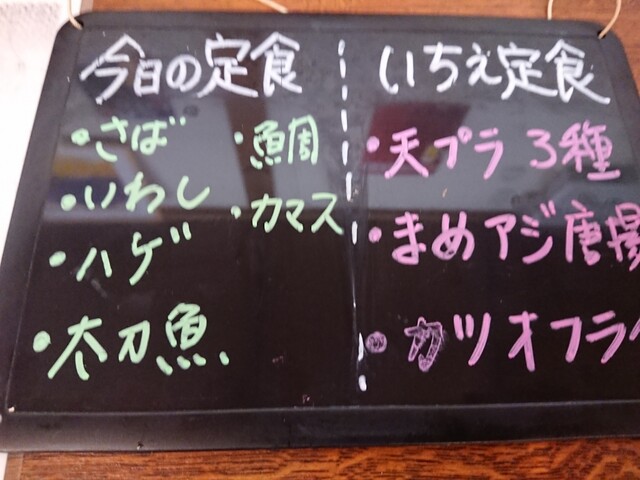 今日の定食
・さば
・いわし
・ハゲ
・太刀魚
・鯛
・カマス
いちえ定食
・天プラ3種
・まめアジ唐揚
・カツオフラ